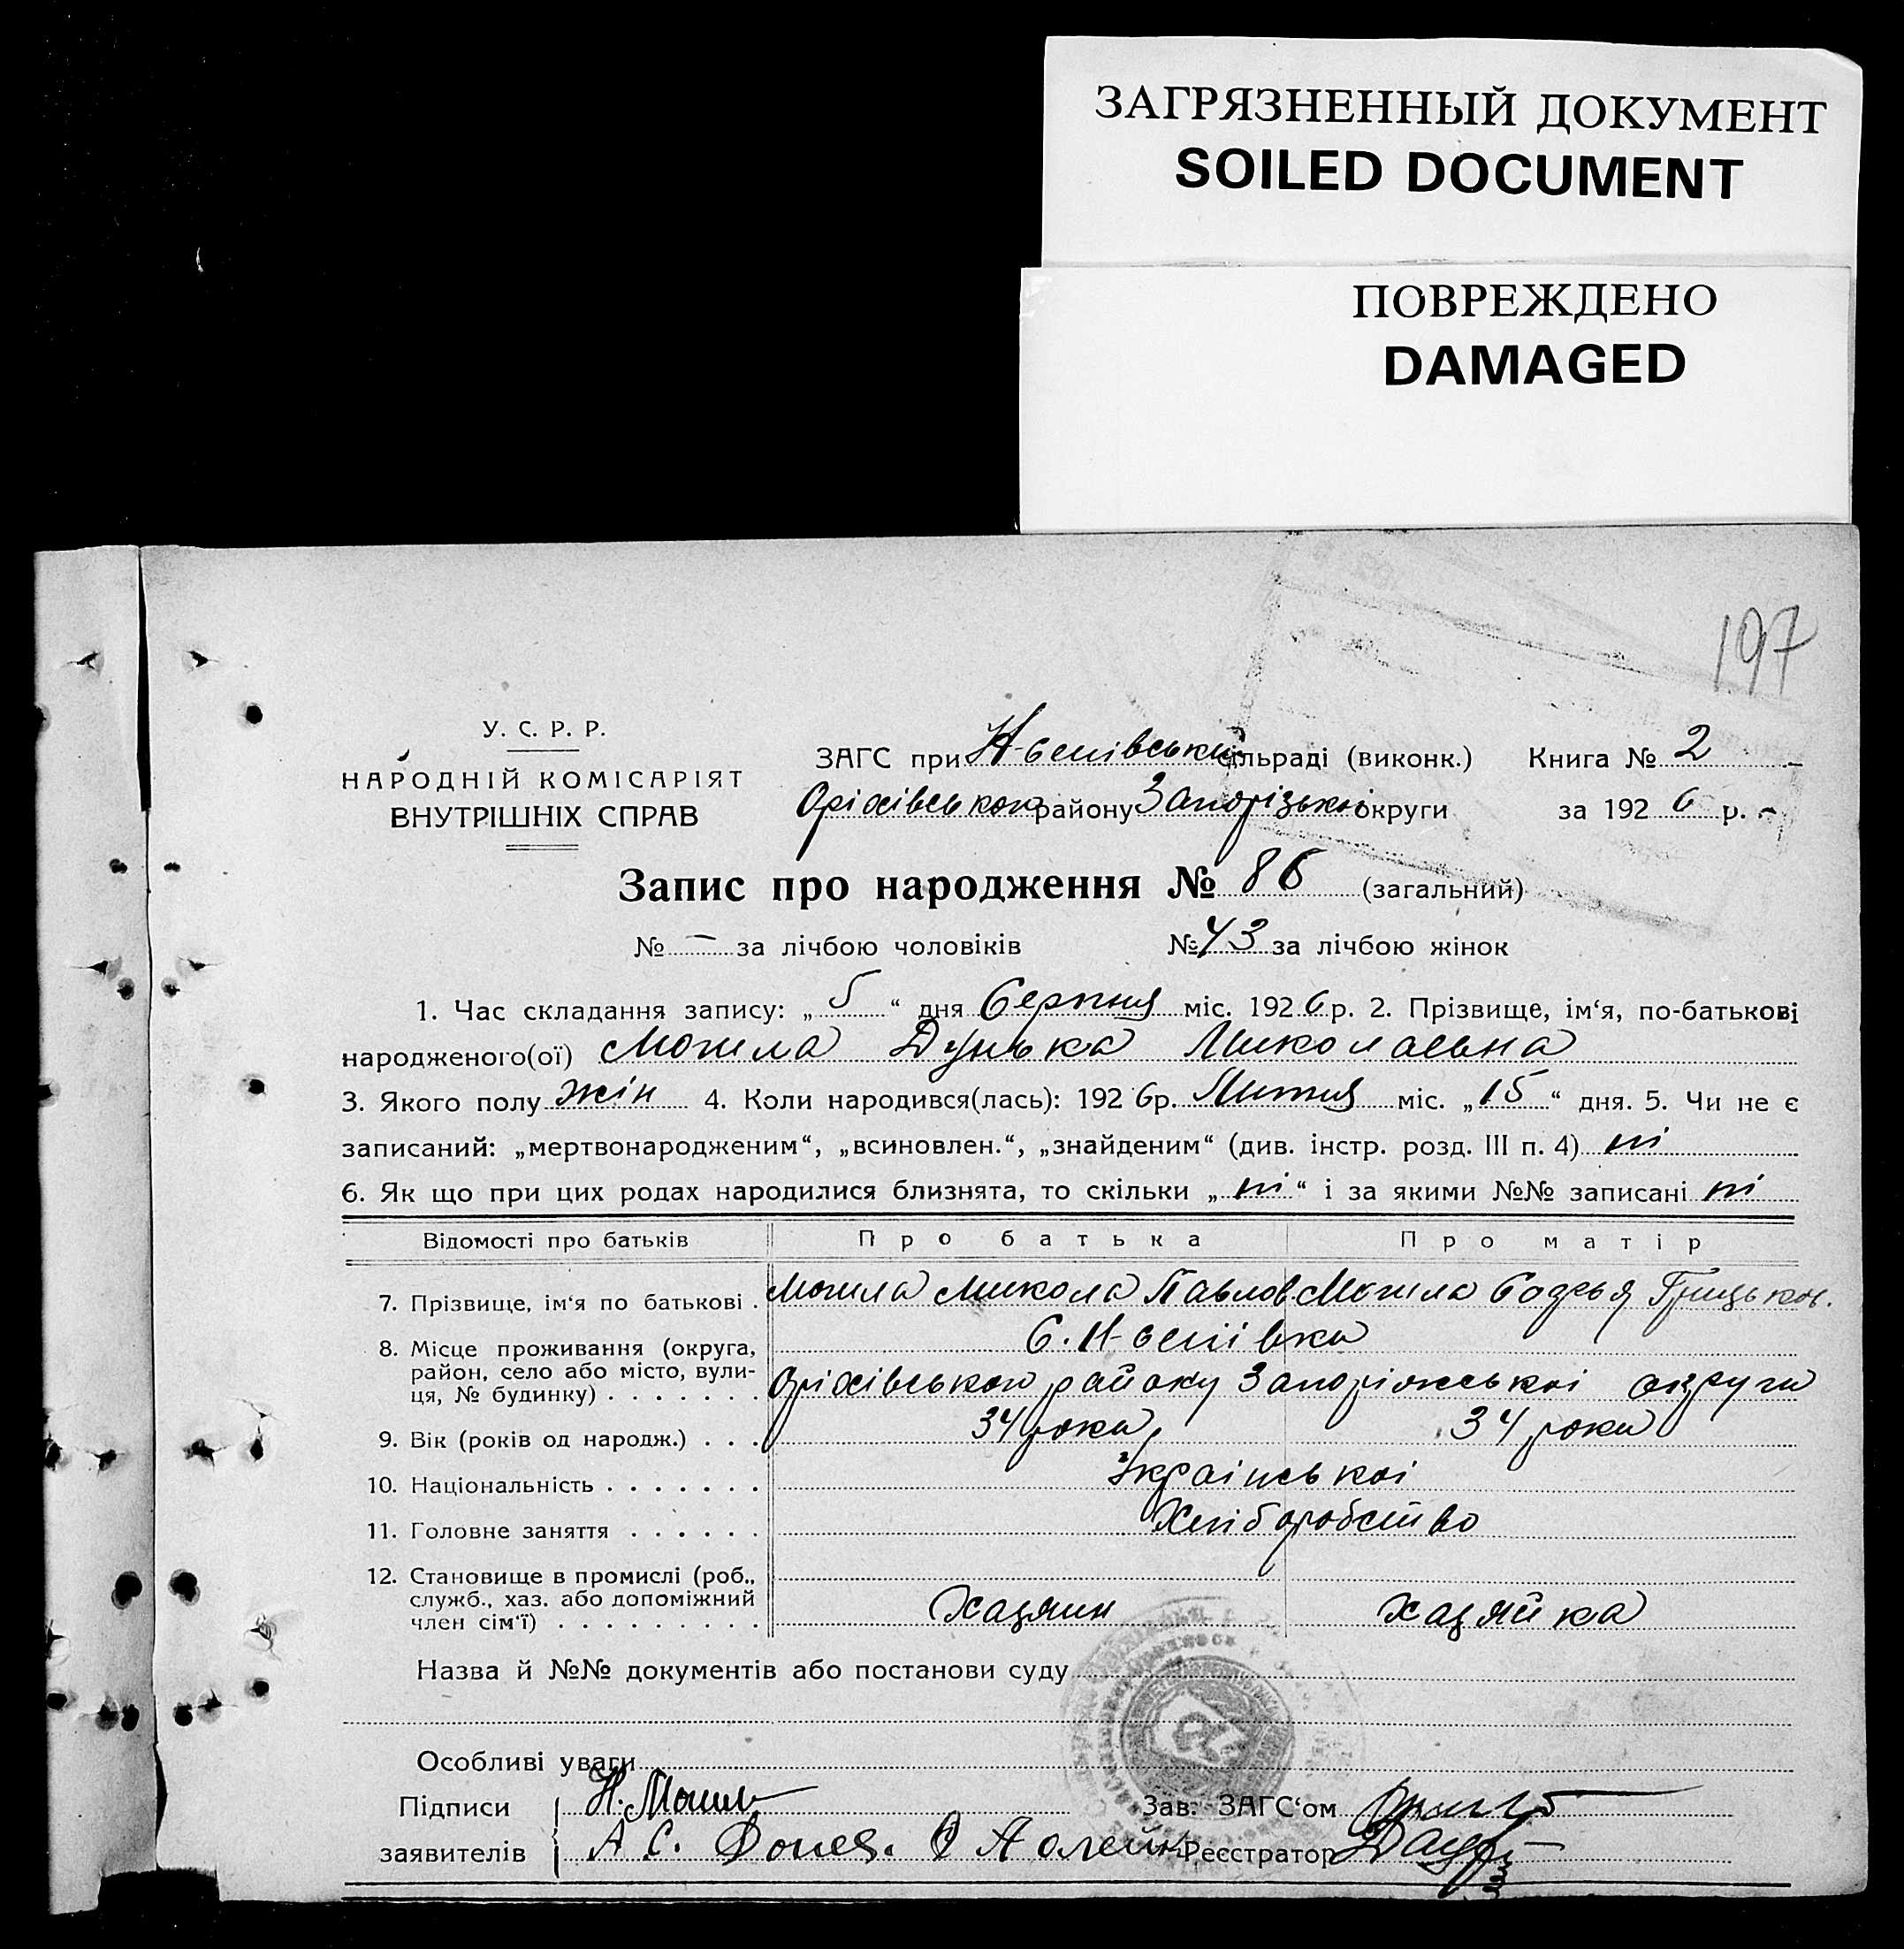 ЗАГРЯЗНЕННЫЙ ДОКУМЕНТ
SOILED DOCUMENT
ПОВРЕЖДЕНО
DAMAGED
197
У. С. Р. Р.
НАРОДНІЙ КОМІСАРІЯТ
ВНУТРІШНІХ СПРАВ
ЗАГС при сільраді (виконк.) Книга № 2
Оріхівського району Запорізької округи за 1926 р.
Запис про народження № 86 (загальний)
№ – за лічбою чоловіків № 43 за лічбою жінок
1. Час складання запису: „5“ дня Серпня міс. 1926 р. 2. Прізвище, ім‘я, по-батькові
народженого(ої) Могила Дунька Миколаевна
3. Якого полу жін 4. Коли народився(лась): 1926р. Липня міс. „15“ дня. 5. Чи не є
записаний: „мертвонародженим“, „всиновлен.“, „знайденим“ (див. інстр. розд. III п. 4) ні
6. Як що при цих родах народилися близнята, то скільки „ні“ і за якими №№ записані ні
Відомості про батьків Про батька Про матір
7. Прізвище, ім‘я по батькові . Могила Микола Павлов Могила Грицьков.
8. Місце проживання (округа,
район, село або місто, вули-
ця, № будинку) . . . . . . . Оріхівського району Запоріжської округи
9. Вік (років од народж.) . . . 34 роки 34 роки
10. Національність . . . . . . . Української
11. Головне заняття . . . . . . Хліборобство
12. Становище в промислі (роб.,
служб., хаз. або допоміжний
член сім‘ї) . . . . . . . . . Хазяин хазяйка
Назва й №№ документів або постанови суду
Особливі уваги
Підписи Н. Могила Зав. ЗАГС‘ом
заявителів А С. Реєстратор